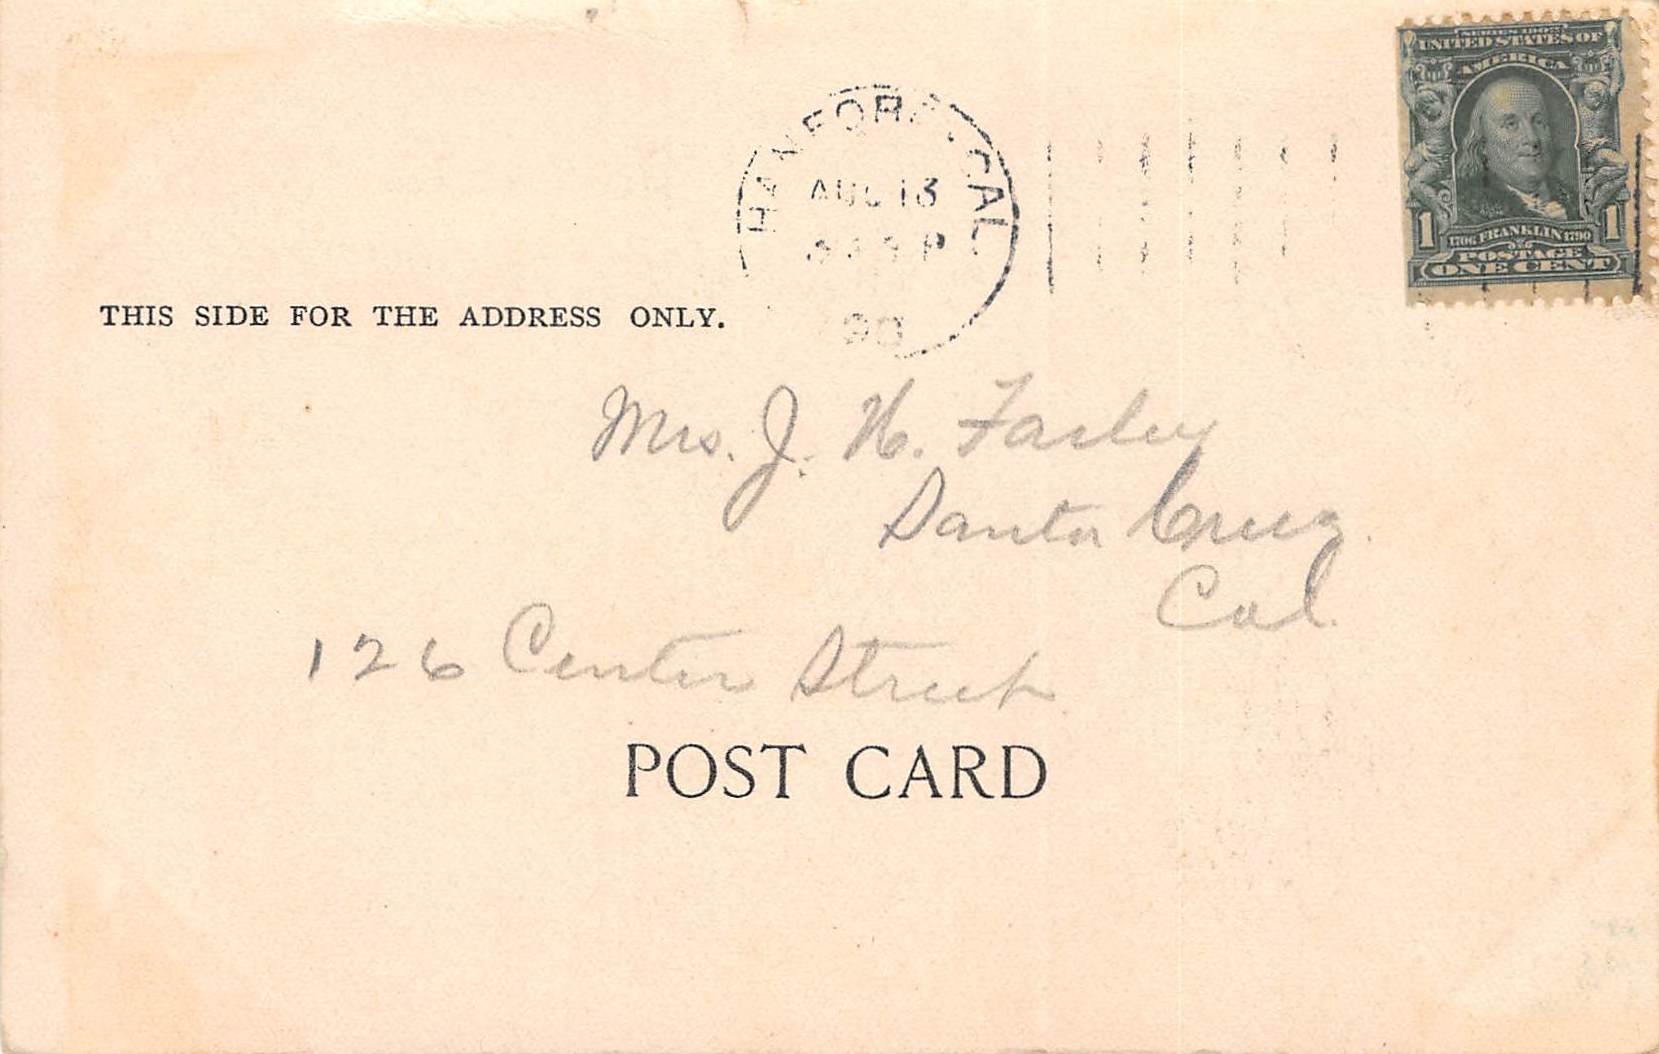 SERIES 1902
UNITED STATES OF
AMERICA
1706 FRANKLIN 1790
1 1
POSTAGE
ONE CENT
HANFORD, CAL.
AUG 13
P
THIS SIDE FOR THE ADDRESS ONLY.
Mrs. J. H. Farley
Santa Cruz.
Cal.
126 Center Street.
POST CARD